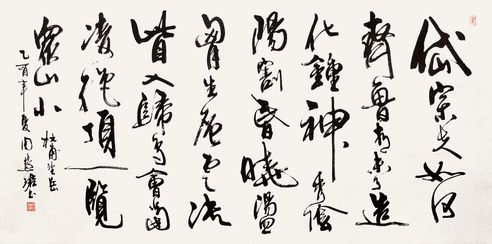 岱宗夫如何
齊魯青未了造
化鍾神秀陰
陽割昏曉盪
胷生層雲決
眥入歸鳥會當
凌絕頂一覽
眾山小 杜甫望岳
乙酉年夏周書